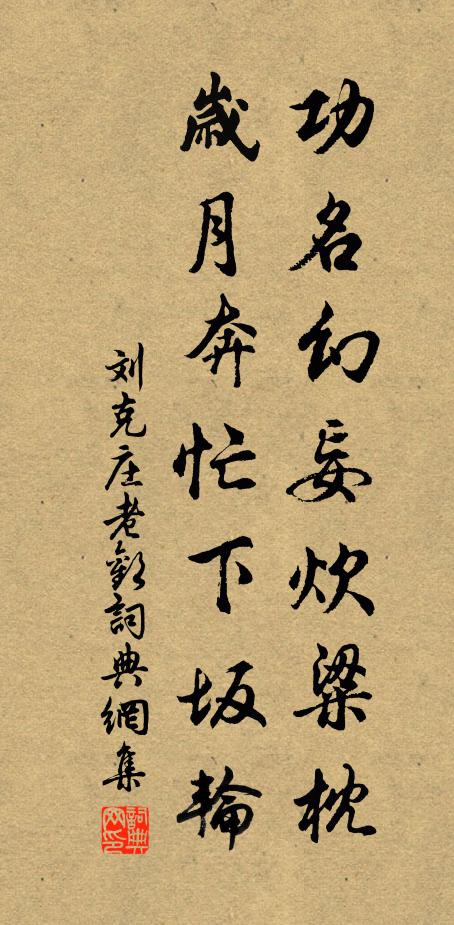 功名幻妄炊粱枕
歲月奔忙下坂輪
刘克庄老歎詞典網集
詞典網印